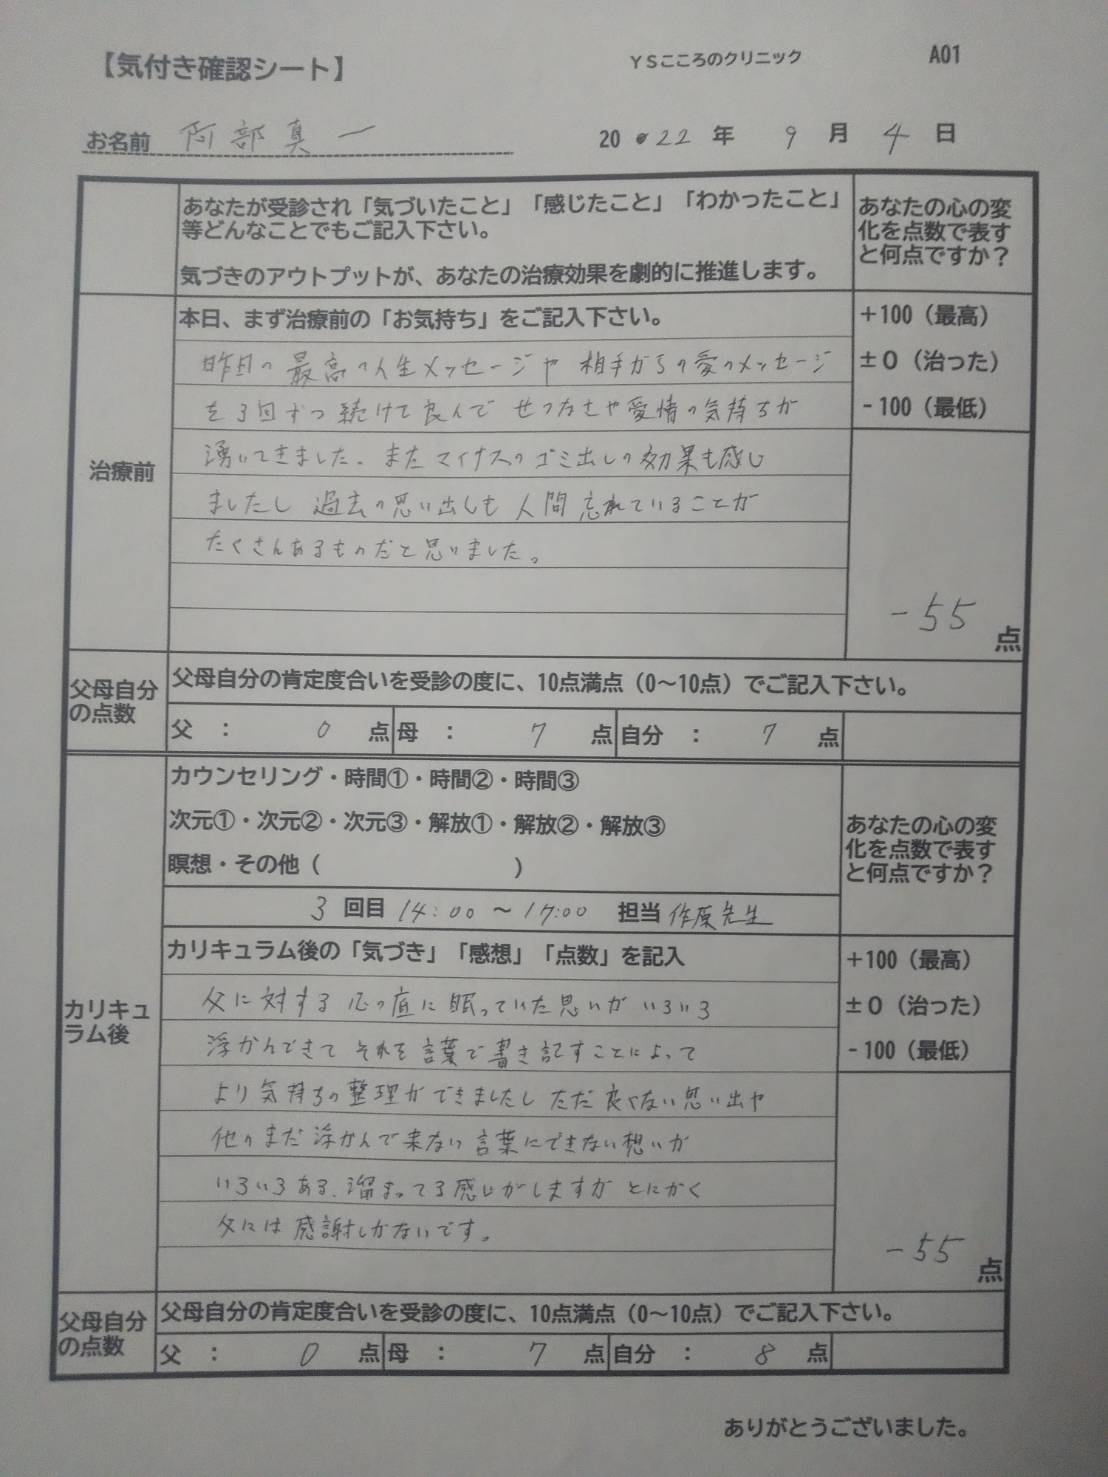 【気付き確認シート】
YSこころのクリニック
A01
お名前 阿部真一
2022年 9月 4日
あなたが受診され「気づいたこと」「感じたこと」「わかったこと」
等どんなことでもご記入下さい。
気づきのアウトプットが、あなたの治療効果を劇的に推進します。
あなたの心の変
化を点数で表す
と何点ですか？
治療前
本日、まず治療前の「お気持ち」をご記入下さい。
昨日の最高の人生メッセージや 相手からの愛のメッセージ
を3回ずつ続けて読んで せつなさや愛情の気持ちが
湧いてきました。また マイナスのゴミ出しの効果も感じ
ましたし 過去の思い出しも 人間忘れていることが
たくさんあるものだと思いました。
+100（最高）
±0（治った）
-100（最低）
-55 点
父母自分
の点数
父母自分の肯定度合いを受診の度に、10点満点（0～10点）でご記入下さい。
父 ： 0 点 母 ： 7 点 自分 ： 7 点
カリキュ
ラム後
カウンセリング・時間①・時間②・時間③
次元①・次元②・次元③・解放①・解放②・解放③
瞑想・その他（ ）
3 回目 14:00 ～ 17:00 担当 作原先生
あなたの心の変
化を点数で表す
と何点ですか？
カリキュラム後の「気づき」「感想」「点数」を記入
父に対する 心の底に眠っていた思いが いろいろ
浮かんできて それを言葉で書き記すことによって
より気持ちの整理ができましたし ただ良くない思い出や
他のまだ浮かんで来ない言葉にできない想いが
いろいろある、溜まってる感じがしますが とにかく
父には感謝しかないです。
+100（最高）
±0（治った）
-100（最低）
-55 点
父母自分
の点数
父母自分の肯定度合いを受診の度に、10点満点（0～10点）でご記入下さい。
父 ： 0 点 母 ： 7 点 自分 ： 8 点
ありがとうございました。